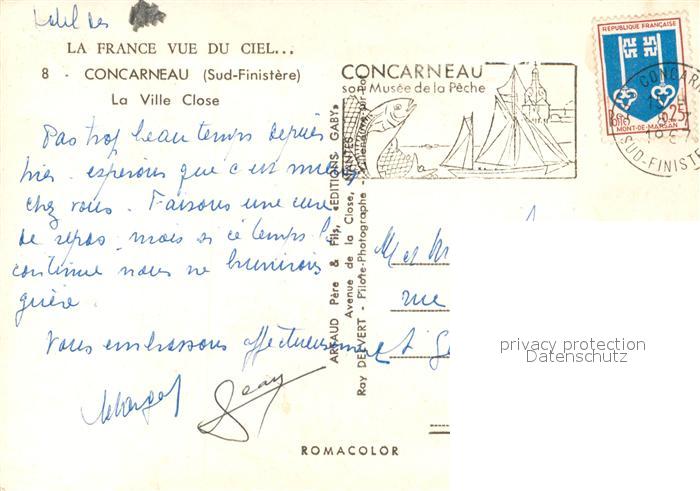 LA FRANCE VUE DU CIEL...
8 - CONCARNEAU (Sud-Finistère)
La Ville Close
Pas trop beau temps depuis
hier. espérons que c'est mieux
chez vous. Faisons une cure
de repos, mais si ce temps là
continue nous ne bronzerons
guère.
Vous embrassons affectueusement
Jean
ROMACOLOR
ARRAUD Père & Fils, «EDITIONS GABY»
Avenue de la Close, NANTES
Ray DELVERT - Pilote-Photographe -
CONCARNEAU
son Musée de la Pêche
REPUBLIQUE FRANÇAISE
0,25
Postes
MONT-DE-MARSAN
CONCARN
SUD-FINISTE
M et M
rue
privacy protection
Datenschutz